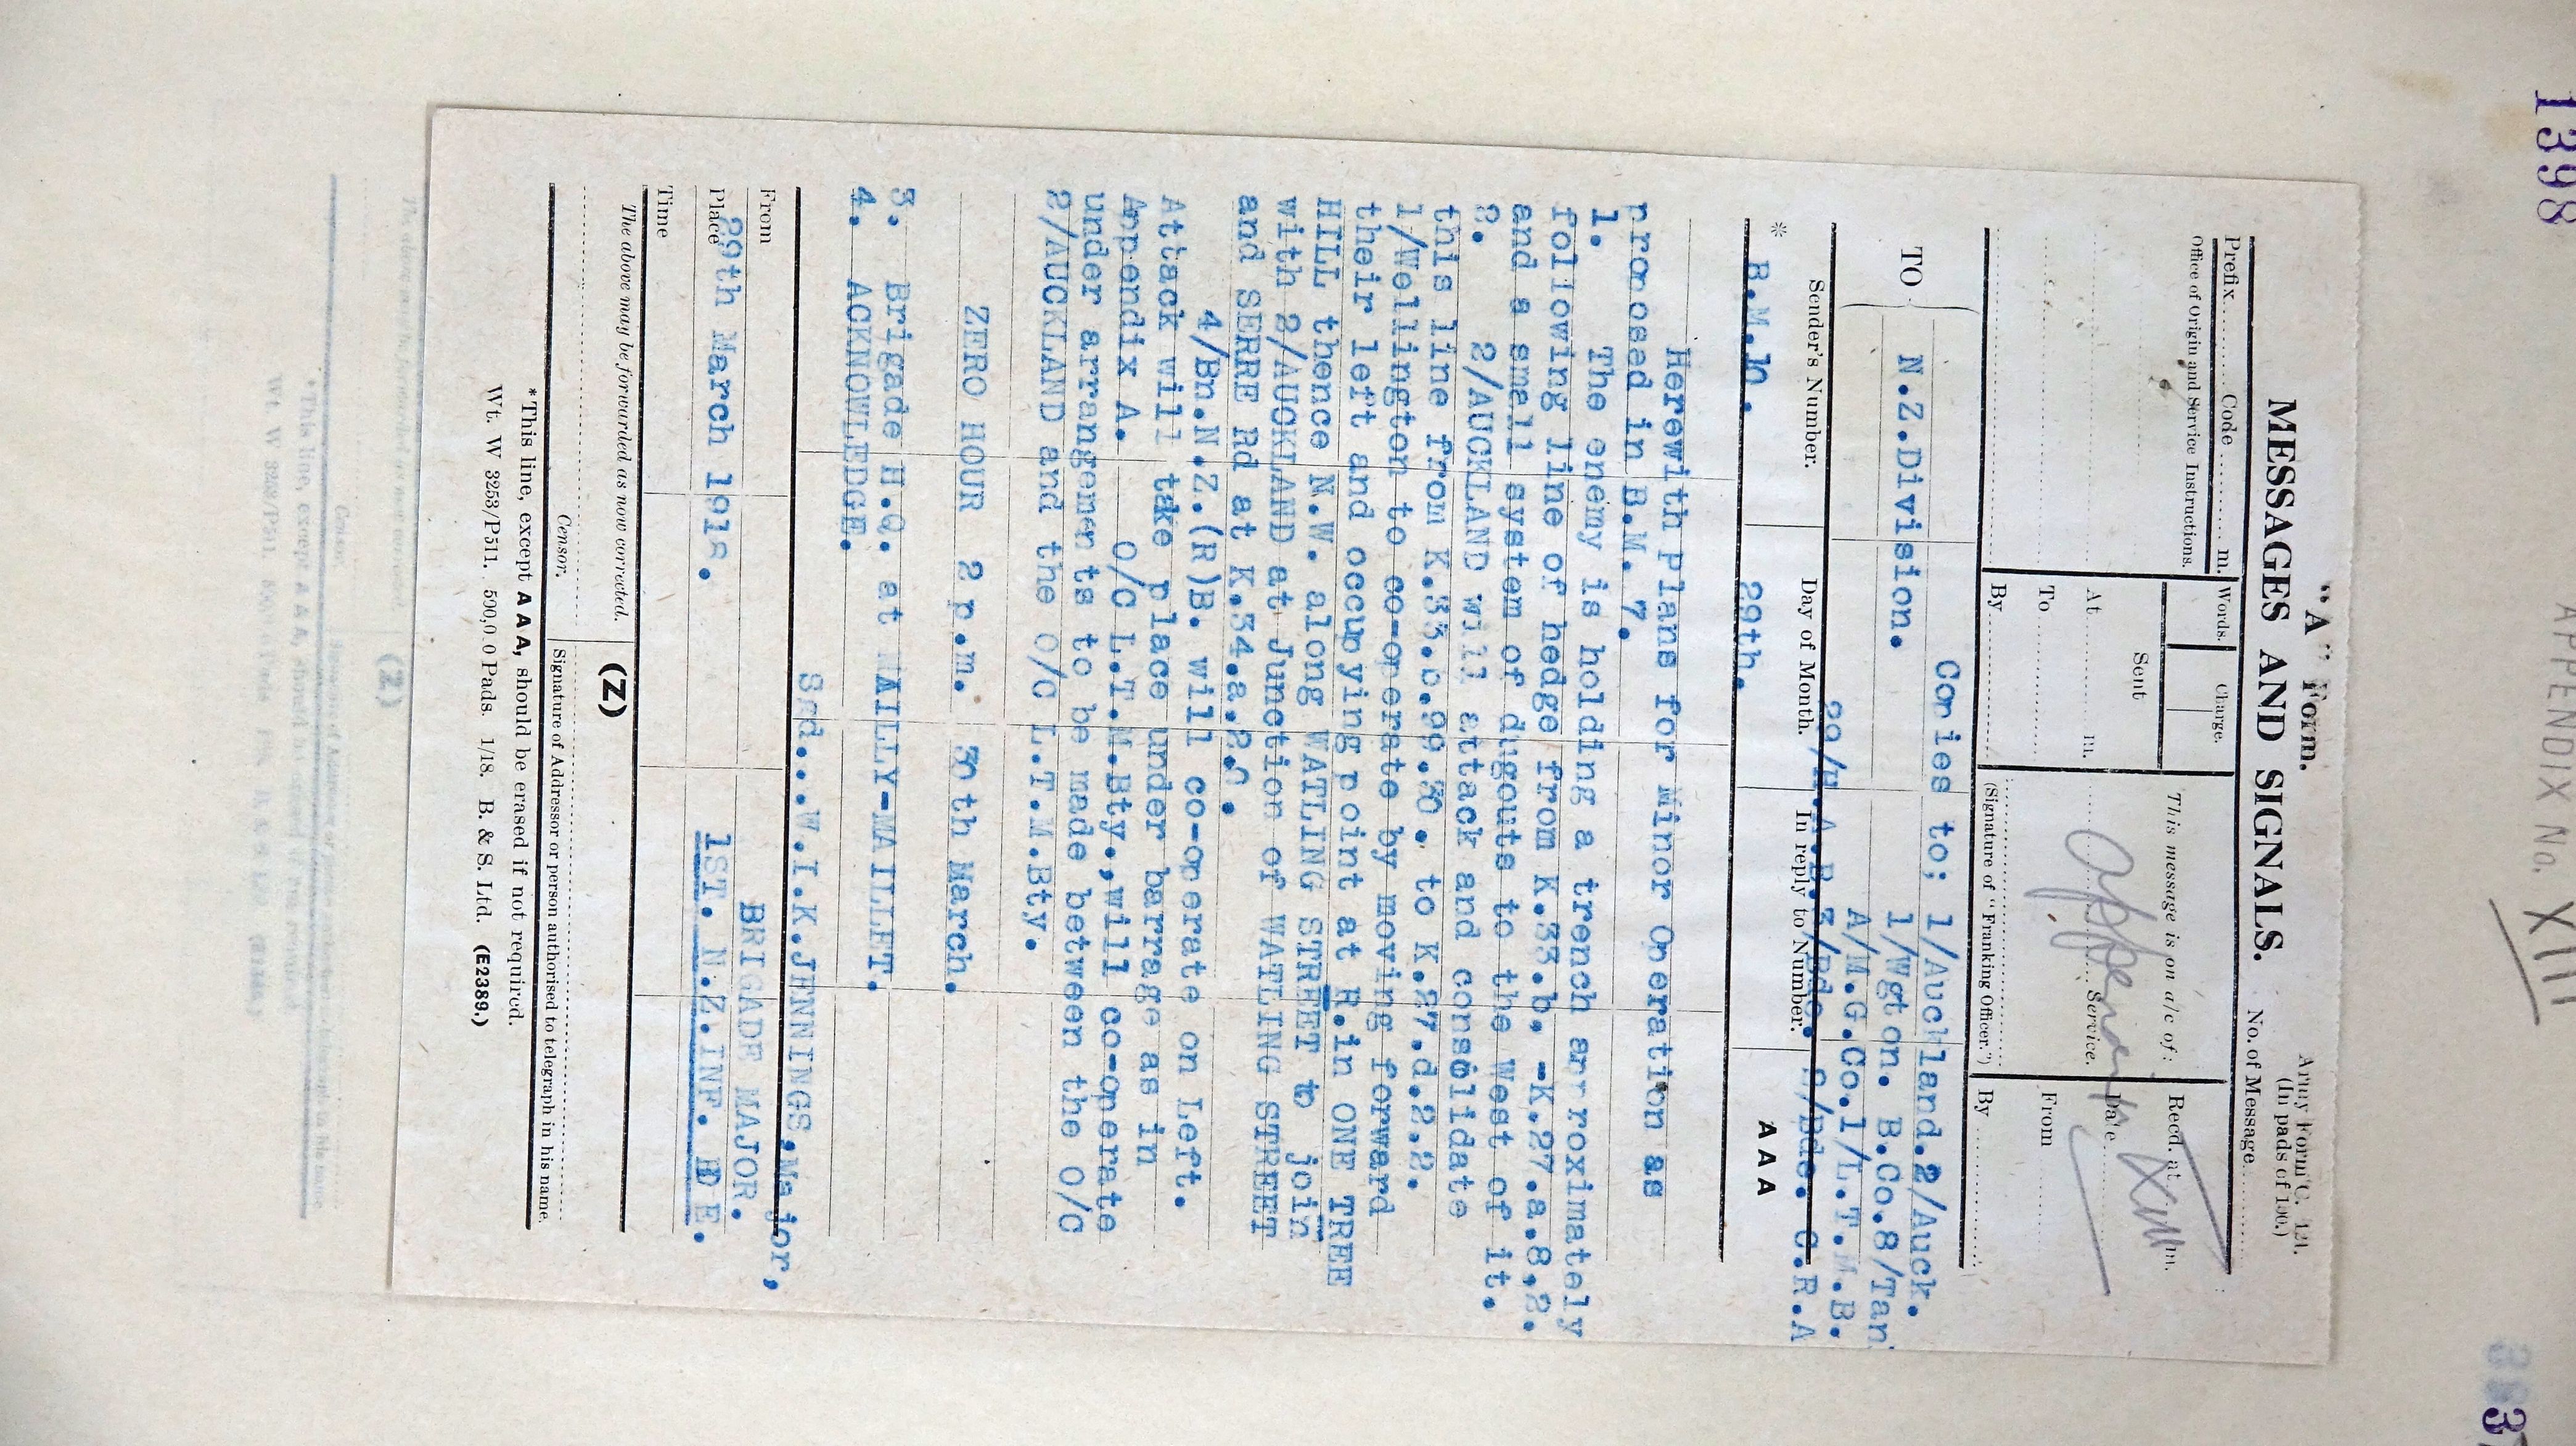 1398
APPENDIX No. XIII
"A" Form.
Army Form C. 121.
(In pads of 100.)
MESSAGES AND SIGNALS.
No. of Message
Prefix Code m.
Words.
Charge.
This message is on a/c of:
Recd. at m.
Office of Origin and Service Instructions.
Sent
At m.
Service.
Date
Appendix XIII
To
From
By
(Signature of "Franking Officer.")
By
Copies to; 1/Auckland. 2/Auck.
TO
N.Z.Division.
1/Wgton. B.Co.8/Tan
A/M.G.Co.1/L.T.M.B.
C.R.A
Sender's Number.
Day of Month.
In reply to Number.
* B.M.10.
29th.
AAA
Herewith plans for Minor Operation as
proposed in B.M. 7.
1. The enemy is holding a trench approximately
following line of hedge from K.33.b. -K.27.a.8,2.
and a small system of dugouts to the West of it.
2. 2/AUCKLAND will attack and consolidate
this line from K.33.b.99.30. to K.27.d.2.2.
1/Wellington to co-operate by moving forward
their left and occupying point at R.in ONE TREE
HILL thence N.W. along WATLING STREET to join
with 2/AUCKLAND at Junction of WATLING STREET
and SERRE Rd at K.34.a.2.0.
4/Bn.N.Z.(R)B. will co-operate on Left.
Attack will take place under barrage as in
Appendix A. O/C L.T.M.Bty.,will co-operate
under arrangements to be made between the O/C
2/AUCKLAND and the O/C L.T.M.Bty.
ZERO HOUR 2 p.m. 30th March.
3. Brigade H.Q. at MAILLY-MAILLET.
4. ACKNOWLEDGE.
Sgd...W.I.K.JENNINGS,Major,
From
BRIGADE MAJOR.
Place
29th March 1918.
1ST. N.Z.INF. BDE.
Time
The above may be forwarded as now corrected.
(Z)
Censor.
Signature of Addressor or person authorised to telegraph in his name.
*This line, except AAA, should be erased if not required.
Wt. W 3253/P511. 500,000 Pads. 1/18. B. & S. Ltd. (E2389.)